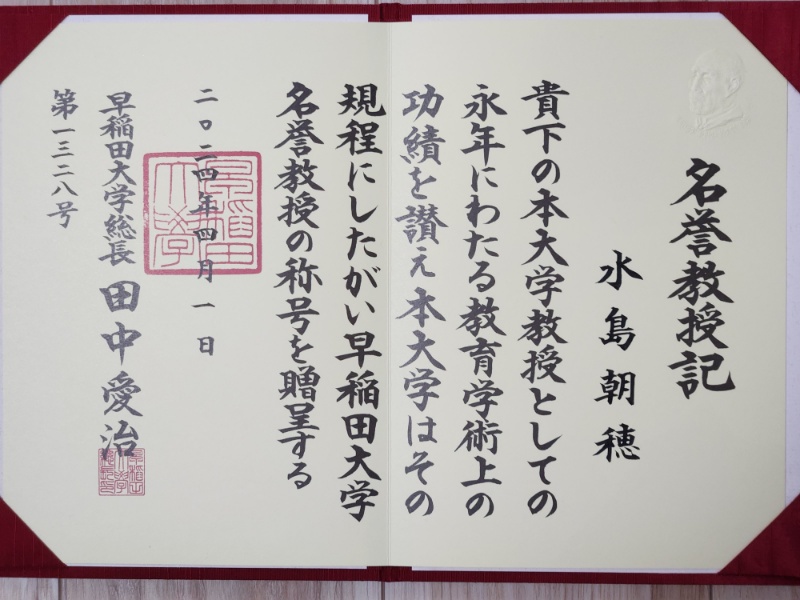 名誉教授記
水島朝穂
貴下の本大学教授としての
永年にわたる教育学術上の
功績を讃え本大学はその
規程にしたがい早稲田大学
名誉教授の称号を贈呈する
二〇二四年四月一日
早稲田大学総長 田中愛治
第一三二八号